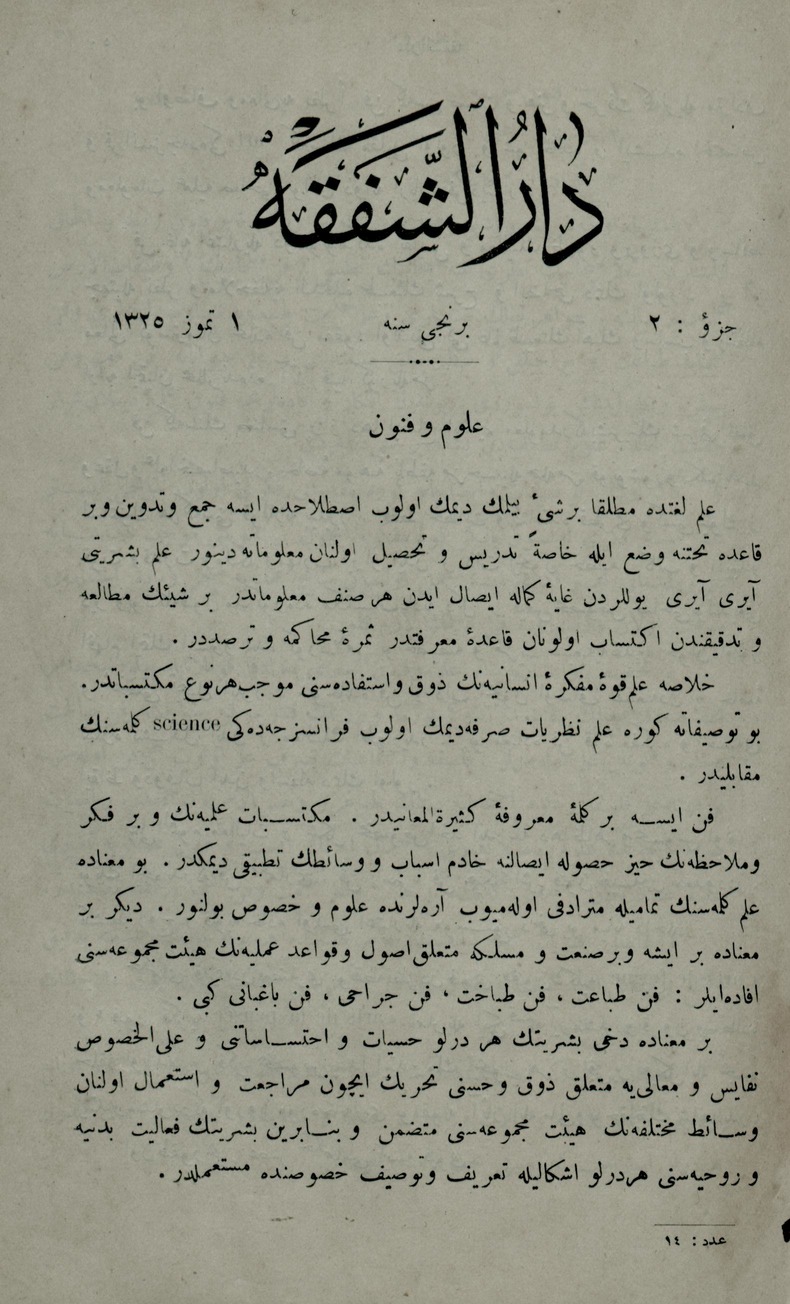 دارُ الشَّفَقَه
جزؤ : ٢ برنجى سنه ١ تموز ١٣٢٥
علوم و فنون
علم لغتده مطلقا بر شیٔ بیلمك دیمك اولوب اصطلاحده ایسه جمع وتدوین وبر
قاعده تحتنه وضع ایله خاصةً تدریس و تحصیل اولنان معلوماته دینور علم بشریتی
آیری آیری یوللردن غایهٔ کماله ایصال ایدن هر صنف معلوماتدر بر شیئك مطالعه
و تدقیقندن اکتساب اولونان قاعدهٔ معرفتدر ثمرهٔ محاکمه و ترصددر .
خلاصه علم قوهٔ مفکرهٔ انسانیه‌نك ذوق واستفاده‌سنی موجب هر نوع مکتسباتدر.
بو توصیفاته کوره علم نظریات صرفه‌دیمك اولوب فرانسزجه‌ده‌کی science کله‌سنك
مقابلیدر .
فن ایســه بر کلهٔ معروفهٔ کثیرة المعانیدر . مکتســبات علمیه‌نك و بر فکر
وملاحظه‌نك حیز حصوله ایصالنه خادم اسباب و وسائطك تطبیقی دیمکدر . بو معناده
علم کله‌سنك تمامیله مترادفی اوله‌میوب آره‌لرنده علوم و خصوص بولنور . دیکر بر
معناده بر ایشه وبر صنعت و مسلكه متعلق اصول وقواعد عملیه‌نك هیئت مجموعه‌سنی
افاده‌ایلر : فن طباعت ، فن طباخت ، فن جراحی ، فن باغبانی کبی .
بر معناده دخی بشریتك هر درلو حسیات و احتســاساتنی و علی الخصوص
نفایس و معالی‌یه متعلق ذوق وحسنی تحریك ایچون مراجعت و استعمال اولنان
وســائط مختلفه‌نك هیئت مجموعه‌سنی متضمن و بنــابرین بشریتك فعالیت بدنیه
و روحیه‌سنی هر درلو اشکالیله تعریف وتوصیف خصوصنده مستعملدر .
عدد : ١٤